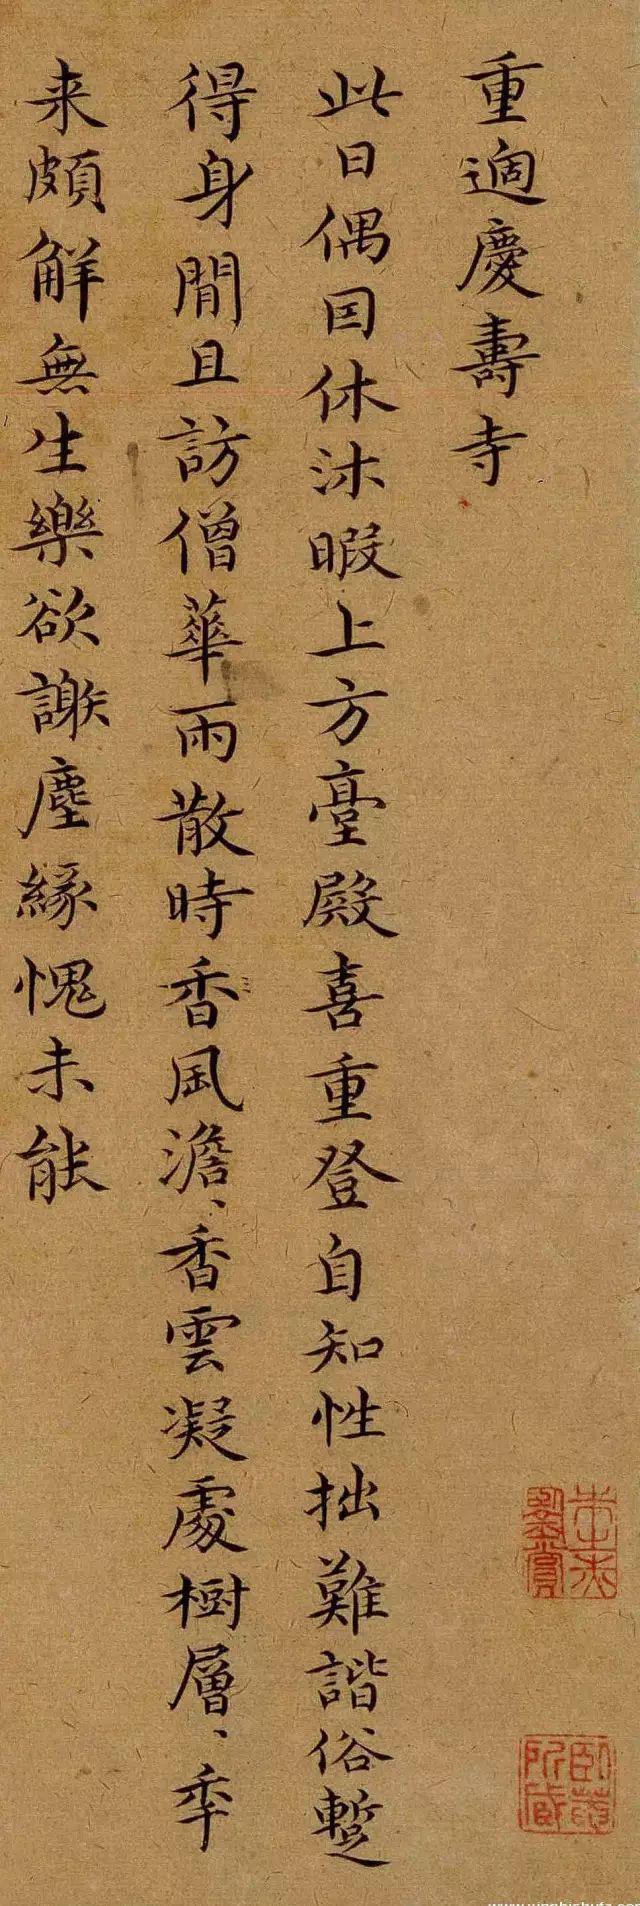 重過慶壽寺
此日偶因休沐暇上方臺殿喜重登自知性拙難諧俗暫
得身閒且訪僧華雨散時香風澹、香雲凝處樹層、年
来頗解無生樂欲謝塵緣愧未能
卧菴所藏